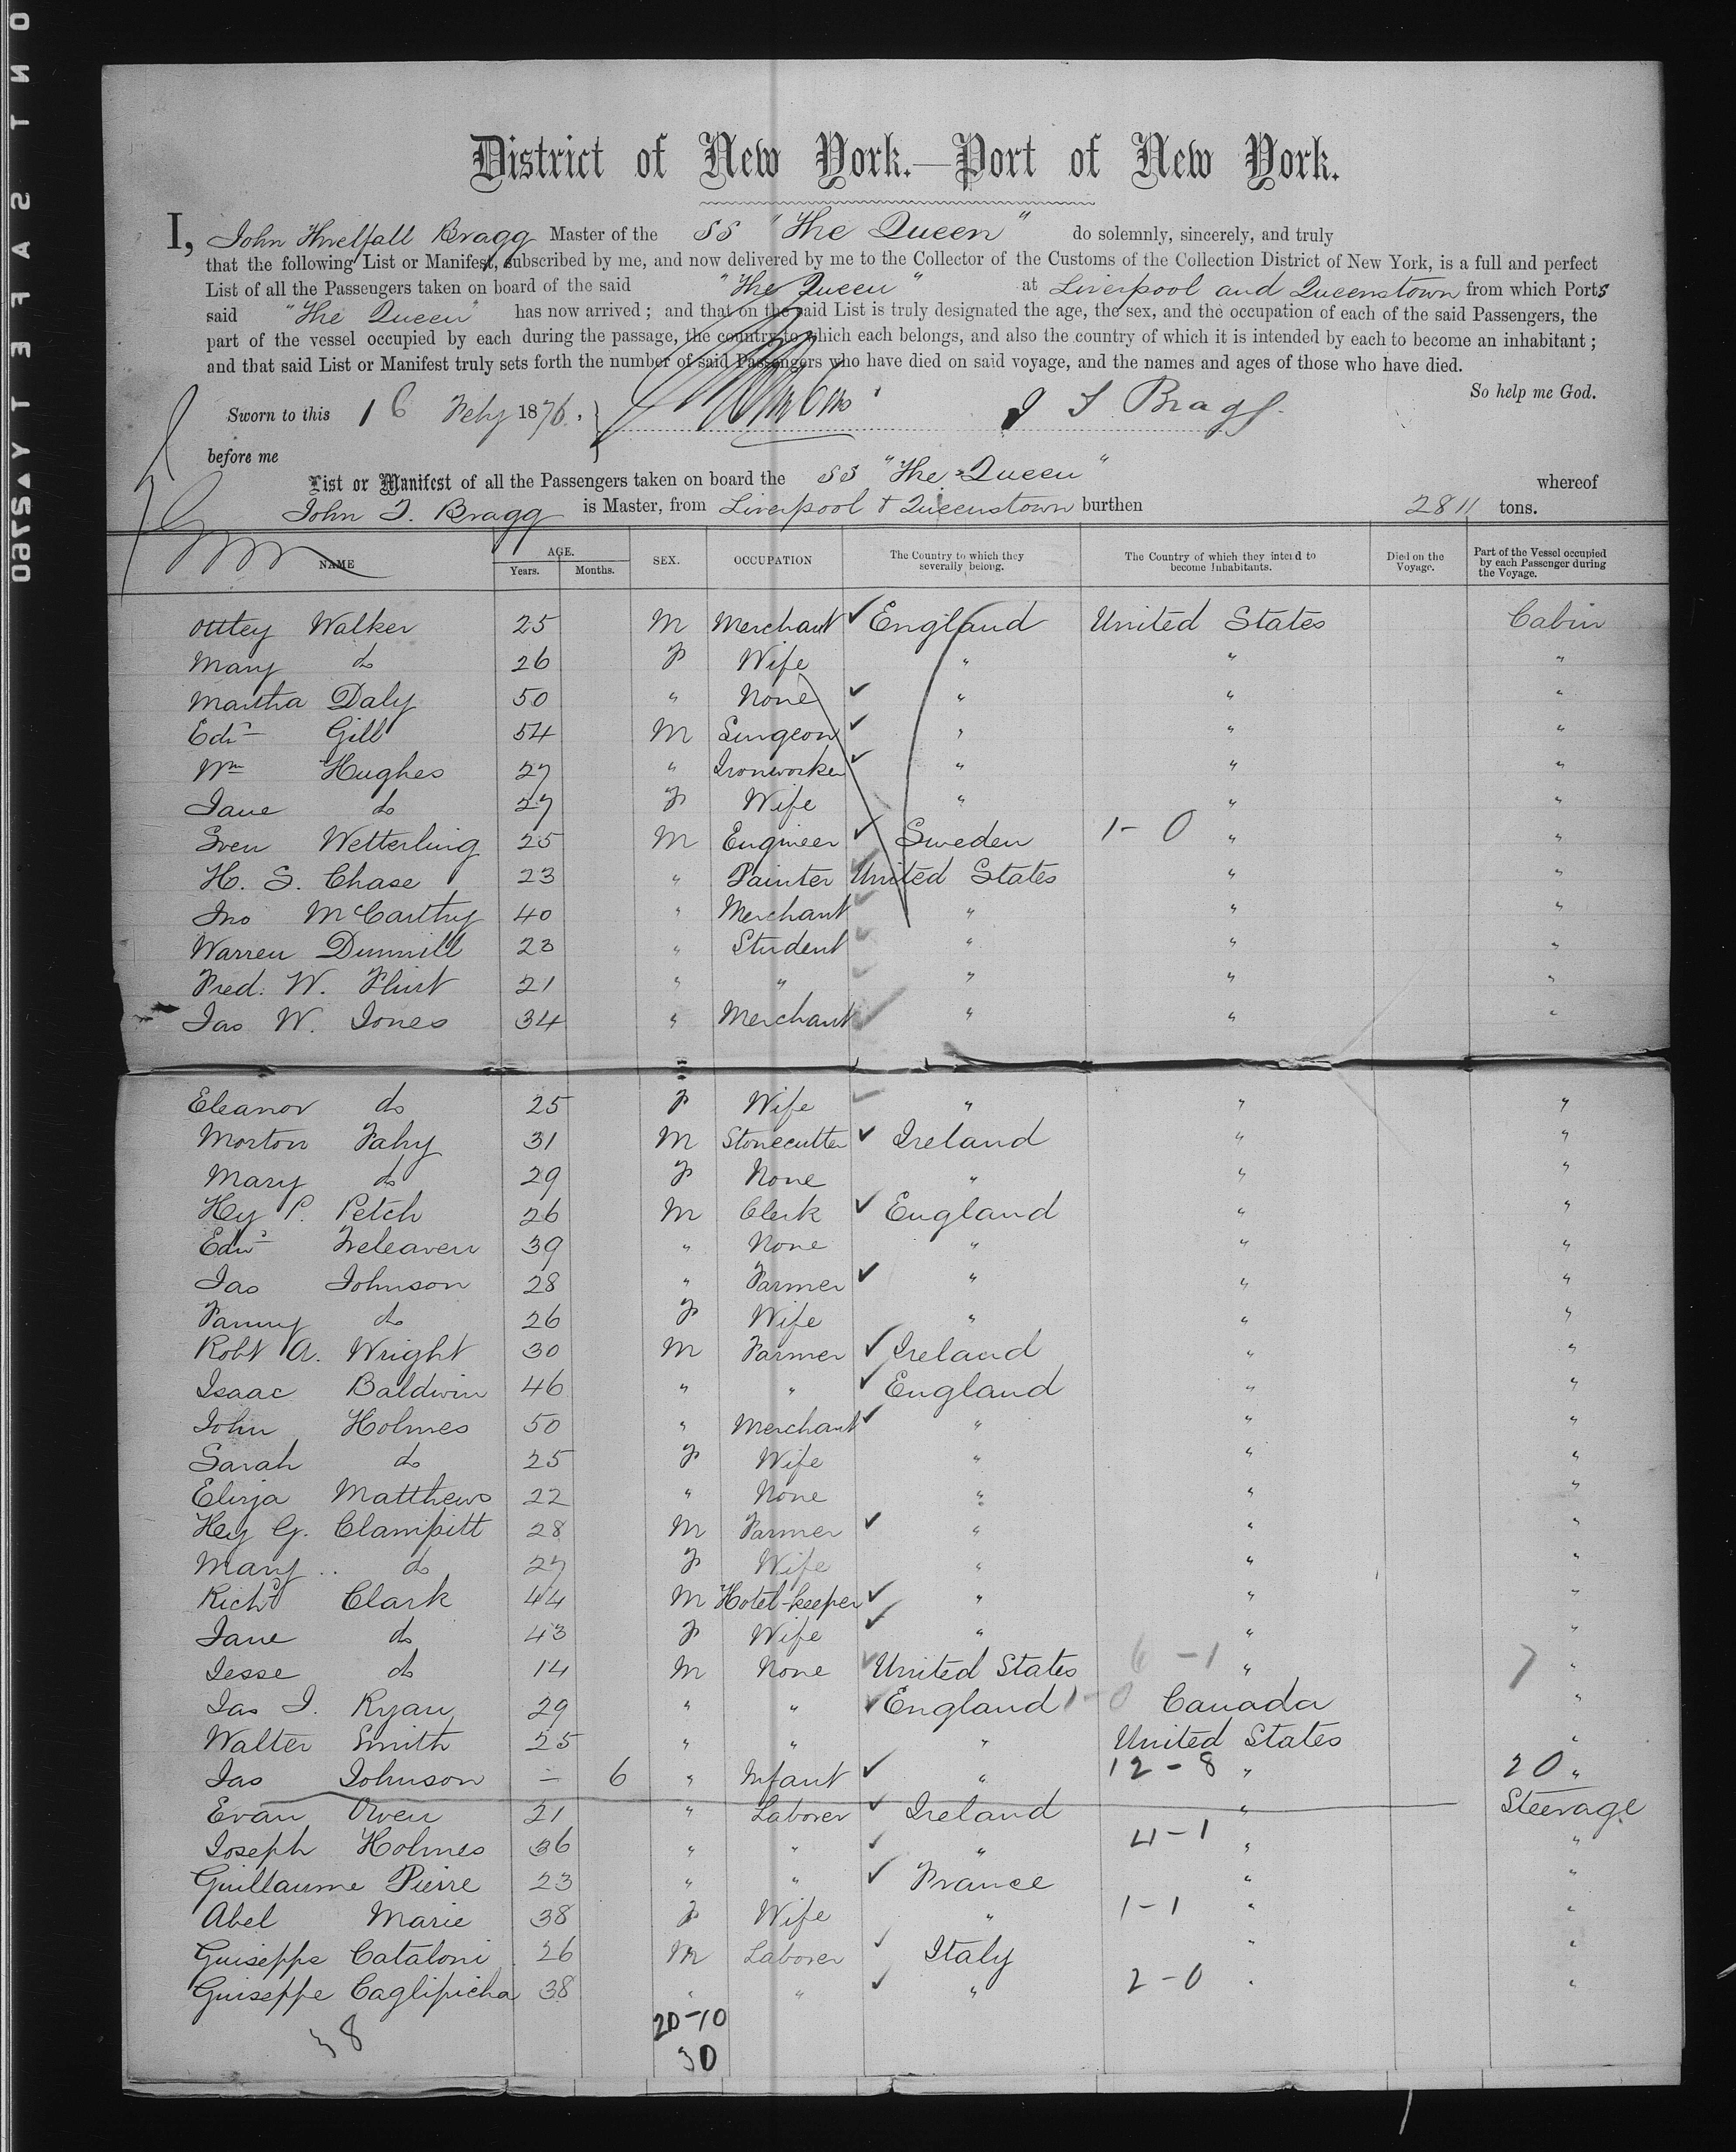 District of New York.—Port of New York.
I, John Threlfall Bragg Master of the SS "The Queen" do solemnly, sincerely, and truly
that the following List or Manifest, subscribed by me, and now delivered by me to the Collector of the Customs of the Collection District of New York, is a full and perfect
List of all the Passengers taken on board of the said "The Queen" at Liverpool and Queenstown from which Ports
said "The Queen" has now arrived; and that on the said List is truly designated the age, the sex, and the occupation of each of the said Passengers, the
part of the vessel occupied by each during the passage, the country to which each belongs, and also the country of which it is intended by each to become an inhabitant;
and that said List or Manifest truly sets forth the number of said Passengers who have died on said voyage, and the names and ages of those who have died.
So help me God.
Sworn to this 16 Feby 1876. J T Bragg.
before me
List or Manifest of all the Passengers taken on board the SS "The Queen" whereof
John T. Bragg is Master, from Liverpool & Queenstown burthen 2811 tons.
NAME AGE. Years. Months. SEX. OCCUPATION The Country to which they severally belong. The Country of which they intend to become Inhabitants. Died on the Voyage. Part of the Vessel occupied by each Passenger during the Voyage.
Ottley Walker 25 M Merchant ✓ England United States Cabin
Mary do 26 F Wife " " "
Martha Daly 50 " None ✓ " " "
Edwd Gill 54 M Surgeon ✓ " " "
Wm Hughes 27 " Ironworker ✓ " " "
Jane do 27 F Wife " " "
Sven Wetterling 25 M Engineer ✓ Sweden 1-0 " "
H. S. Chase 23 " Painter ✓ United States " "
Jno McCarthy 40 " Merchant ✓ " " "
Warren Dunnill 23 " Student ✓ " " "
Fred. W. Flint 21 " " ✓ " " "
Jas W. Jones 34 " Merchant ✓ " " "
Eleanor do 25 F Wife ✓ " " "
Morton Fahy 31 M Stonecutter ✓ Ireland " "
Mary do 29 F None " " "
Hy P. Petch 26 M Clerk ✓ England " "
Edwd Treleaven 39 " None " " "
Jas Johnson 28 " Farmer ✓ " " "
Fanny do 26 F Wife " " "
Robt A. Wright 30 M Farmer ✓ Ireland " "
Isaac Baldwin 46 " " ✓ England " "
John Holmes 50 " Merchant ✓ " " "
Sarah do 25 F Wife " " "
Eliza Matthews 22 " None " " "
Hy G. Clampitt 28 M Farmer ✓ " " "
Mary do 27 F Wife " " "
Richd Clark 44 M Hotel-keeper ✓ " " "
Jane do 43 F Wife ✓ " " "
Jesse do 14 M None ✓ United States 6-1 " 7 "
Jas J. Ryan 29 " " ✓ England 1-0 Canada "
Walter Smith 25 " " " United States "
Jas Johnson — 6 " Infant ✓ " 12-8 " 20 "
Evan Owen 21 " Laborer ✓ Ireland " Steerage
Joseph Holmes 36 " " ✓ " 4-1 " "
Guillaume Pierre 23 " " ✓ France " "
Abel Marie 38 F Wife " 1-1 " "
Guiseppe Cataloni 26 M Laborer ✓ Italy " "
Guiseppe Caglipicha 38 " " ✓ " 2-0 " "
20-10
38 30